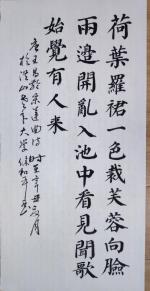 荷葉羅裙一色裁芙蓉向臉
兩邊開亂入池中看見聞歌
始覺有人来
唐王昌齡采蓮曲詩